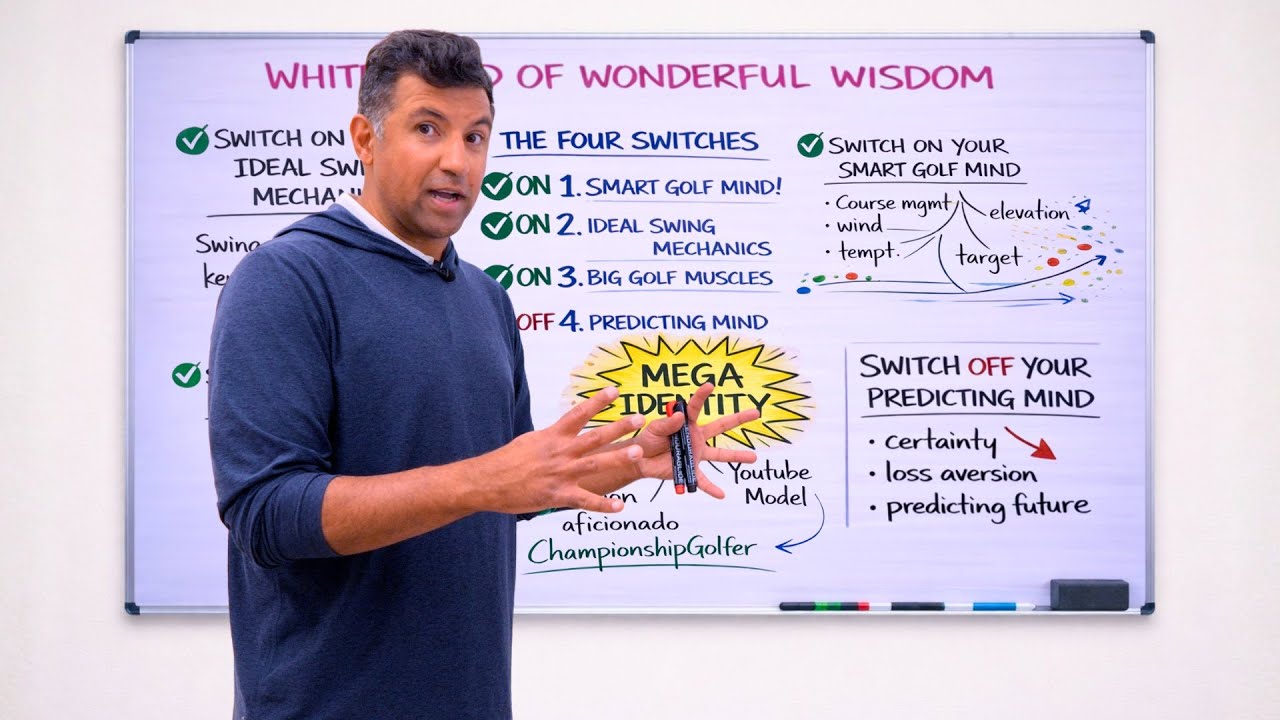 WHIT D OF WONDERFUL WISDOM
SWITCH ON
IDEAL SWI
MECHANI
Swing
ke
THE FOUR SWITCHES
ON 1. SMART GOLF MIND!
ON 2. IDEAL SWING
MECHANICS
ON 3. BIG GOLF MUSCLES
OFF 4. PREDICTING MIND
MEGA
IDENTITY
Youtube
Model
on
aficionado
ChampionshipGolfer
SWITCH ON YOUR
SMART GOLF MIND
• Course mgmt
• wind
• tempt.
elevation
target
SWITCH OFF YOUR
PREDICTING MIND
• certainty
• loss aversion
• predicting future